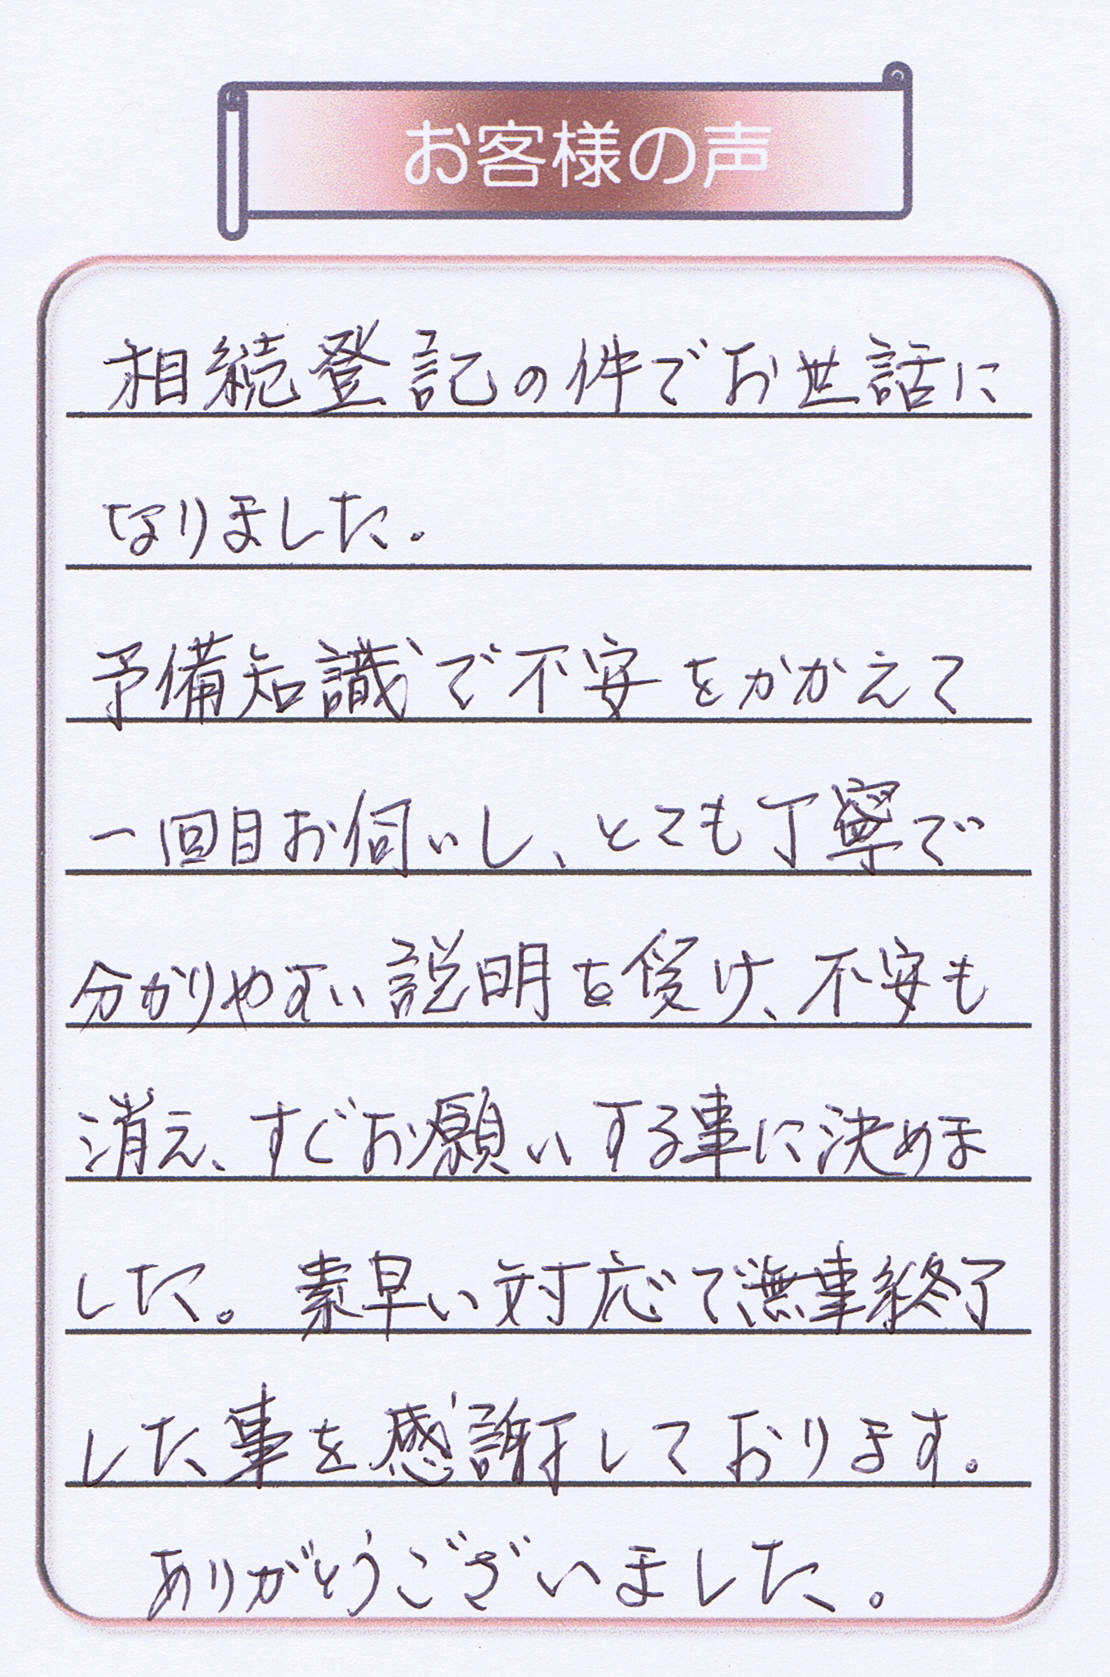 お客様の声
相続登記の件でお世話に
なりました。
予備知識で不安をかかえて
一回目お伺いし、とても丁寧で
分かりやすい説明を受け、不安も
消え、すぐお願いする事に決めま
した。素早い対応で無事終了
した事を感謝しております。
ありがとうございました。